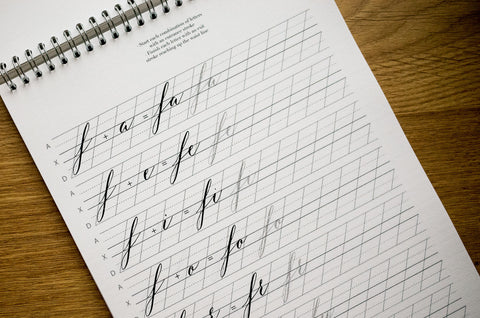 Start each combination of letters
with an entrance stroke
Finish each letter with an exit
stroke reaching up the waist line
A
X f + a = fa fa
D
A
X f + e = fe fe
D
A
X f + i = fi fi
D
A
X f + o = fo fo
D
r = fr fr